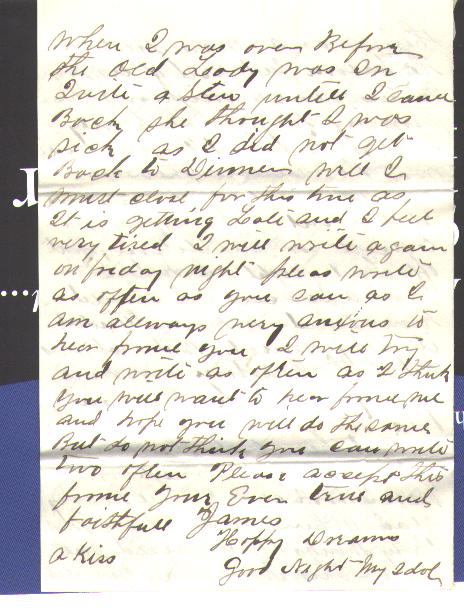 when I was over Before
the Old Lady was in
Quite a Stew untell I came
Back she thought I was
sick as I did not get
Back to Dinner well I
must close for this time as
It is getting Late and I feel
very tired I will write again
on friday night pleas write
as often as you can as I
am allways very anxous to
hear frome you I will try
and write as often as I think
you will want to hear frome me
and hope you will do the same
But do not think you can write
two often Please accept this
frome your Ever true and
faithfull James
Happy Dreams
a Kiss
Good Night My Idol